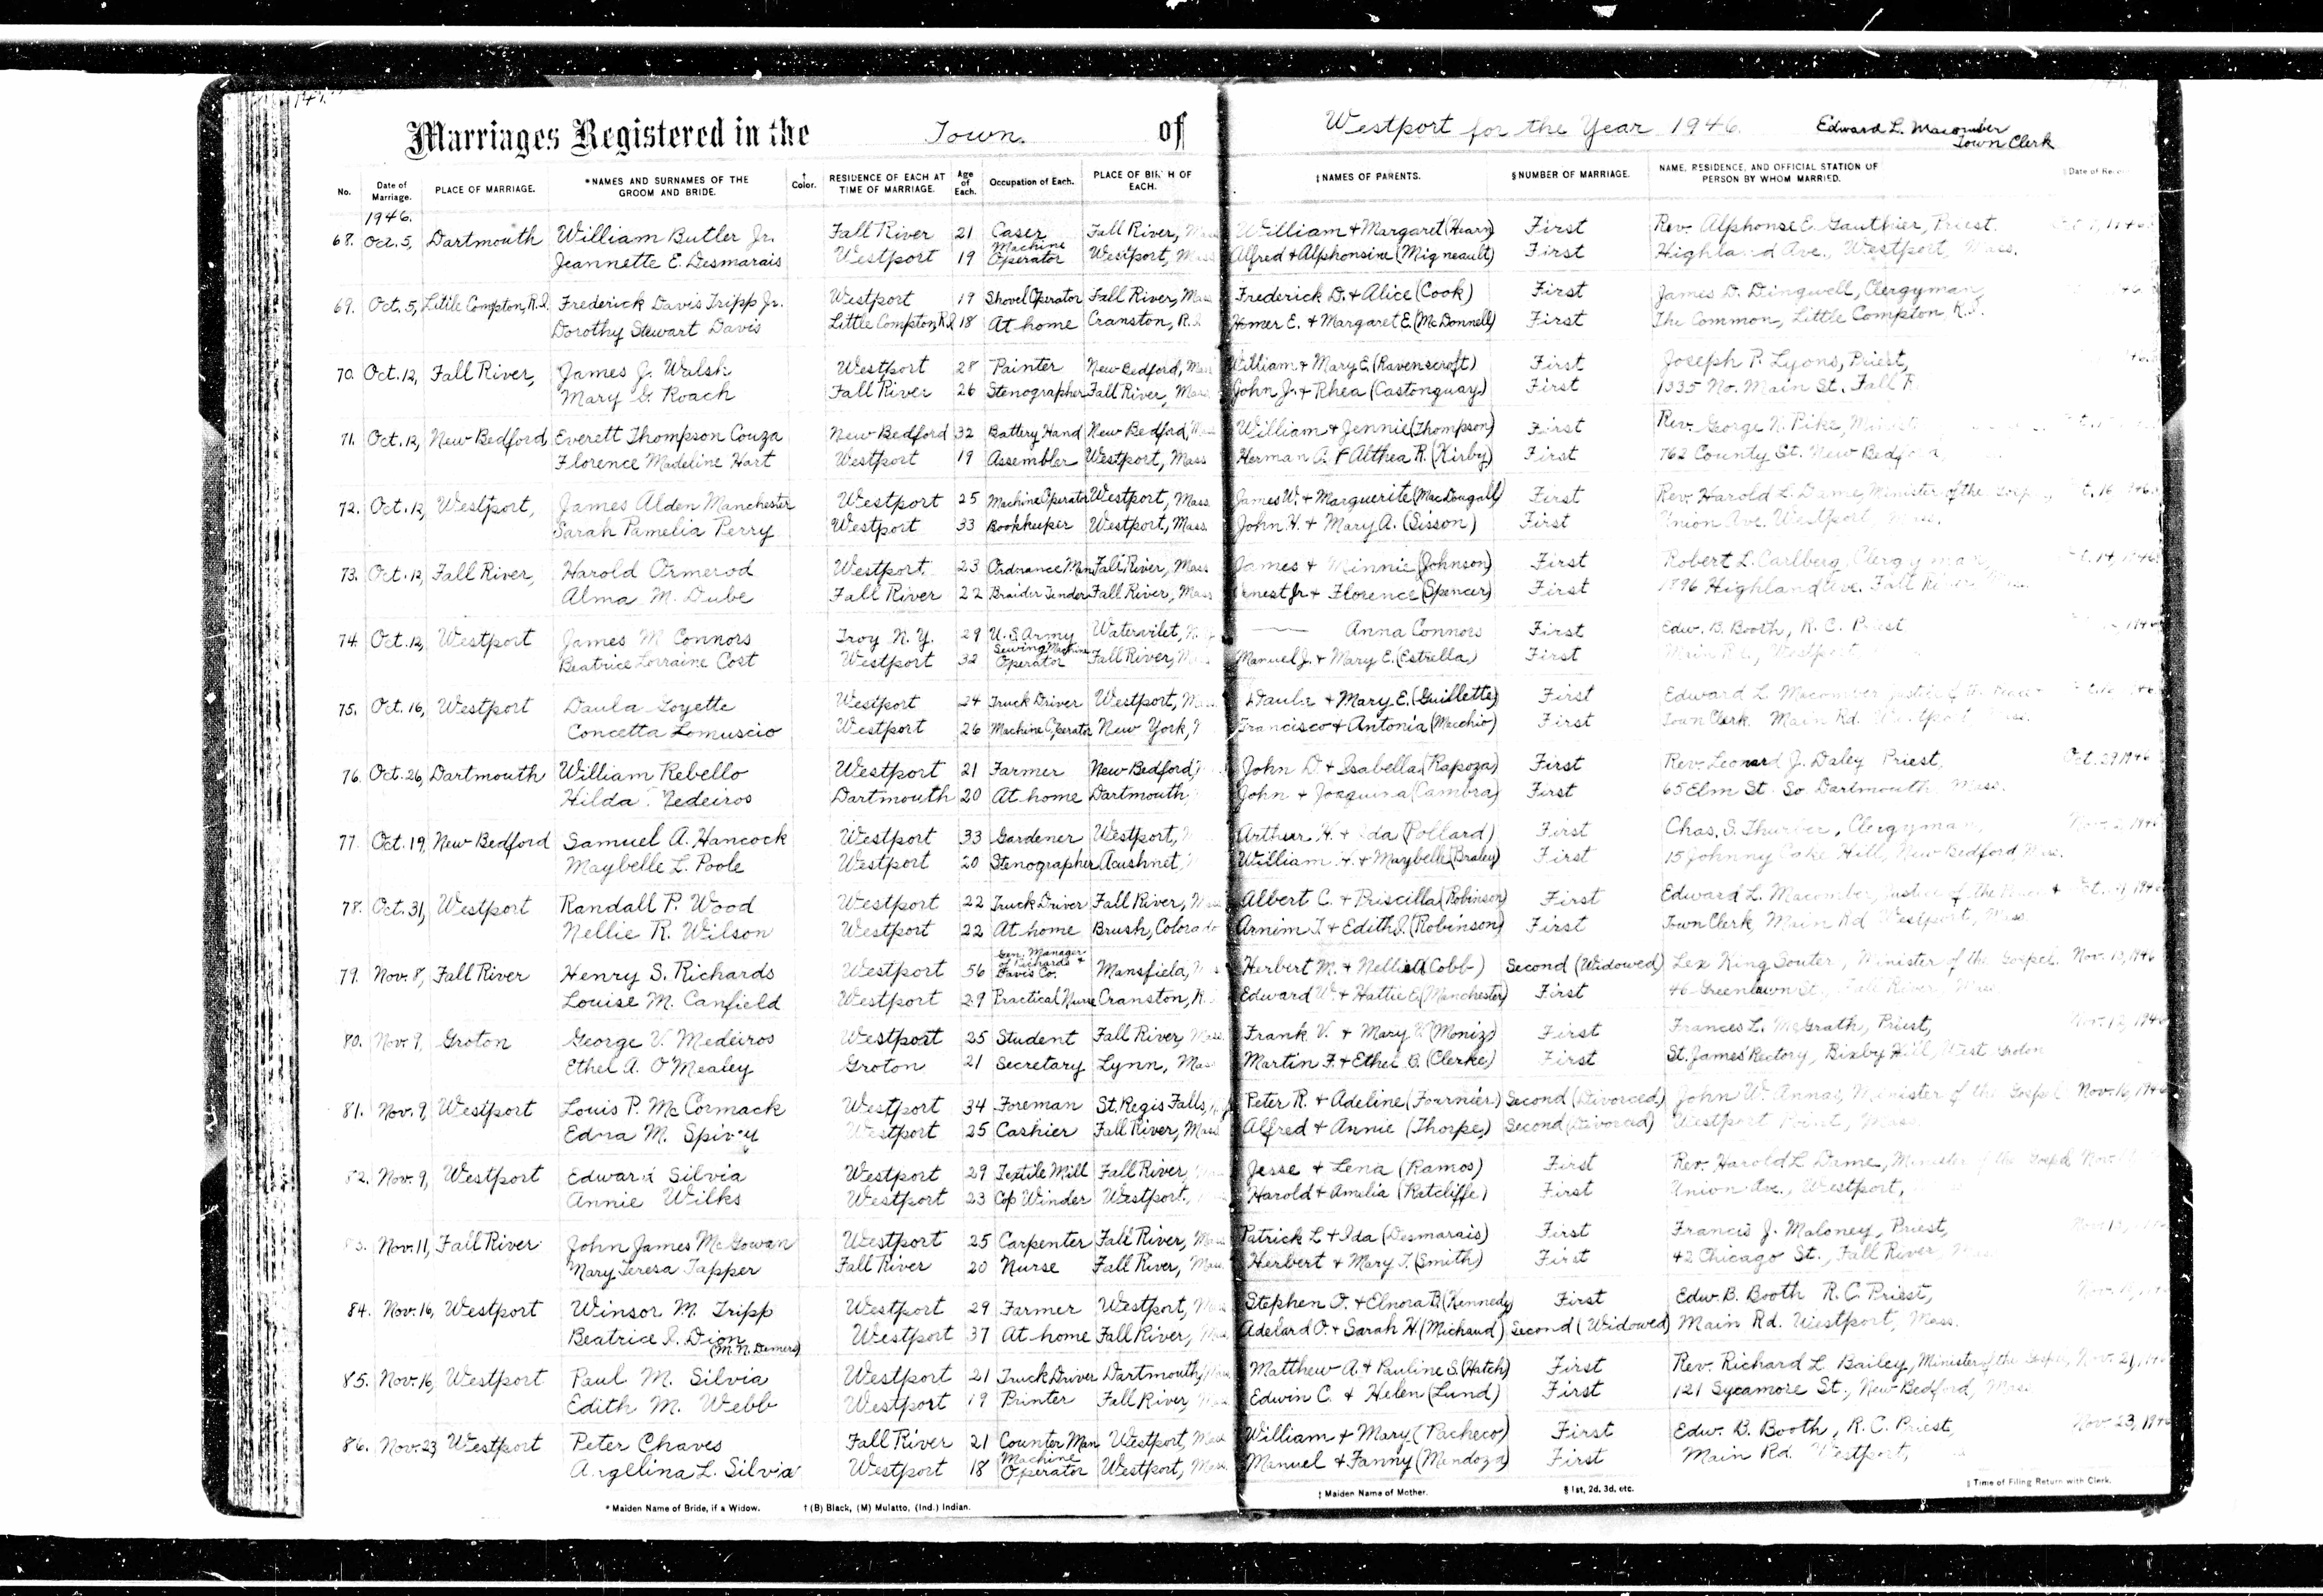 Marriages Registered in the Town of Westport for the Year 1946. Edward L. Macomber
Town Clerk
No. Date of Marriage. PLACE OF MARRIAGE. *NAMES AND SURNAMES OF THE GROOM AND BRIDE. † Color. RESIDENCE OF EACH AT TIME OF MARRIAGE. Age of Each. Occupation of Each. PLACE OF BIRTH OF EACH. ‡NAMES OF PARENTS. §NUMBER OF MARRIAGE. NAME, RESIDENCE, AND OFFICIAL STATION OF PERSON BY WHOM MARRIED. Date of
1946.
68. Oct. 5, Dartmouth William Butler Jr. Fall River 21 Caser Fall River, William + Margaret (Hearn) First Rev. Alphonse E. Gauthier, Priest.
Jeannette E. Desmarais Westport 19 Machine Operator Westport, Mass Alfred + Alphonsine (Migneault) First Highland Ave., Westport, Mass.
69. Oct. 5, Little Compton, R.I. Frederick Davis Tripp Jr. Westport 19 Shovel Operator Fall River, Mass Frederick D. + Alice (Cook) First James D. Dingwell, Clergyman,
Dorothy Stewart Davis Little Compton, R.I. 18 At home Cranston, R.I. Homer E. + Margaret E. (McDonnell) First The Common, Little Compton R.I.
70. Oct. 12, Fall River, James J. Walsh Westport 28 Painter New Bedford, Mass William + Mary E. (Ravenscroft) First Joseph P. Lyons, Priest,
Mary G. Roach Fall River 26 Stenographer Fall River, Mass John J. + Rhea (Castonguay) First 1335 No. Main St. Fall R
71. Oct. 12, New Bedford Everett Thompson Couza New Bedford 32 Battery Hand New Bedford, William + Jennie (Thompson) First Rev. George N. Pike,
Florence Madeline Hart Westport 19 Assembler Westport, Mass Herman A. + Althea R. (Kirby) First 762 County St. New Bedford,
72. Oct. 12, Westport, James Alden Manchester Westport 25 Machine Operator Westport, Mass. James W. + Marguerite (MacDougall) First Rev. Harold L. Dame, Minister of the Gospel,
Sarah Pamelia Perry Westport 33 Bookkeeper Westport, Mass. John H. + Mary A. (Sisson) First Union Ave. Westport
73. Oct. 12, Fall River, Harold Ormerod Westport. 23 Ordnance Man Fall River, Mass James + Minnie (Johnson) First Robert L. Carlberg, Clergyman,
Alma M. Dube Fall River 22 Braider Tender Fall River, Mass Ernest Jr. + Florence (Spencer) First 1896 Highland Ave. Fall River
74. Oct. 12, Westport James M Connors Troy N.Y. 29 U.S. Army Watervliet, N. — Anna Connors First Edw. B. Booth, R. C. Priest
Beatrice Lorraine Cost Westport 32 Sewing Machine Operator Fall River, Manuel J. + Mary E. (Estrella) First Main Rd., Westport
75. Oct. 16, Westport Daula Goyette Westport 24 Truck Driver Westport, Daula + Mary E. (Guillette) First Edward L. Macomber Justice of the Peace +
Concetta Lomuscio Westport 26 Machine Operator New York, Francisco + Antonia (Macchio) First Town Clerk Main Rd. Westport
76. Oct. 26, Dartmouth William Rebello Westport 21 Farmer New Bedford, John D. + Isabella (Rapoza) First Rev. Leonard J. Daley Priest, Oct. 29 1946
Hilda Medeiros Dartmouth 20 At home Dartmouth, John + Joaquina (Cambra) First 65 Elm St. So. Dartmouth, Mass.
77. Oct. 19, New Bedford Samuel A. Hancock Westport 33 Gardener Westport, Arthur H. + Ida (Pollard) First Chas. S. Thurber, Clergyman
Maybelle L. Poole Westport 20 Stenographer Acushnet William H. + Maybelle (Braley) First 15 Johnny Cake Hill, New Bedford, Mass.
78. Oct. 31, Westport Randall P. Wood Westport 22 Truck Driver Fall River, Albert C. + Priscilla (Robinson) First Edward L. Macomber, Justice of the Peace +
Nellie R. Wilson Westport 22 At home Brush, Colorado Arnim T. + Edith J. (Robinson) First Town Clerk, Main Rd Westport, Mass.
79. Nov. 8, Fall River Henry S. Richards Westport 56 Gen. Manager of Richards + Davis Co. Mansfield, Herbert M. + Nellie A (Cobb) Second (Widowed) Lex King Souter, Minister of the Gospel. Nov. 13, 1946
Louise M. Canfield Westport 29 Practical Nurse Cranston, R. Edward W. + Hattie E. (Manchester) First 46 Greenlawn St., Fall River, Mass
80. Nov. 9, Groton George V. Medeiros Westport 25 Student Fall River, Mass. Frank V. + Mary V. (Moniz) First Frances L. McGrath, Priest, Nov. 12, 1946
Ethel A. O'Mealey Groton 21 Secretary Lynn, Mass Martin F. + Ethel B. (Clerke) First St. James' Rectory, Bixby Hill, West Groton
81. Nov. 9, Westport Louis P. McCormack Westport 34 Foreman St. Regis Falls, Peter R. + Adeline (Fournier) Second (Divorced) John W. Annas, Minister of the Gospel Nov. 16, 1946
Edna M. Spivey Westport 25 Cashier Fall River, Mass Alfred + Annie (Thorpe) Second (Divorced) Westport Point, Mass.
82. Nov. 9, Westport Edward Silvia Westport 29 Textile Mill Fall River, Jesse + Lena (Ramos) First Rev. Harold L Dame, Minister of the Gospel
Annie Wilks Westport 23 Cop Winder Westport. Harold + Amelia (Ratcliffe) First Union Ave., Westport,
83. Nov. 11, Fall River John James McGowan Westport 25 Carpenter Fall River, Patrick L + Ida (Desmarais) First Francis J. Maloney, Priest,
Mary Teresa Tapper Fall River 20 Nurse Fall River, Mass. Herbert + Mary T. (Smith) First 42 Chicago St., Fall River,
84. Nov. 16, Westport Winsor M. Tripp Westport 29 Farmer Westport, Stephen O. + Elnora B. (Kennedy) First Edw. B. Booth R. C. Priest,
Beatrice I. Dion (M.N. Demers) Westport 37 At home Fall River, Adelard O. + Sarah H. (Michaud) Second (Widowed) Main Rd. Westport, Mass.
85. Nov. 16, Westport Paul M. Silvia Westport 21 Truck Driver Dartmouth, Matthew A. + Pauline S. (Hatch) First Rev. Richard L. Bailey, Minister of the Gospel, Nov. 21,
Edith M. Webb Westport 19 Printer Fall River, Edwin C. + Helen (Lund) First 121 Sycamore St., New Bedford, Mass.
86. Nov. 23 Westport Peter Chaves Fall River 21 Counter Man Westport, Mass William + Mary (Pacheco) First Edw. B. Booth, R. C. Priest, Nov. 23, 1946
Angelina L. Silvia Westport 18 Machine Operator Westport, Mass. Manuel + Fanny (Mendoza) First Main Rd. Westport,
* Maiden Name of Bride, if a Widow. † (B) Black, (M) Mulatto, (Ind.) Indian. ‡ Maiden Name of Mother. § 1st, 2d, 3d, etc. ‖ Time of Filing Return with Clerk.